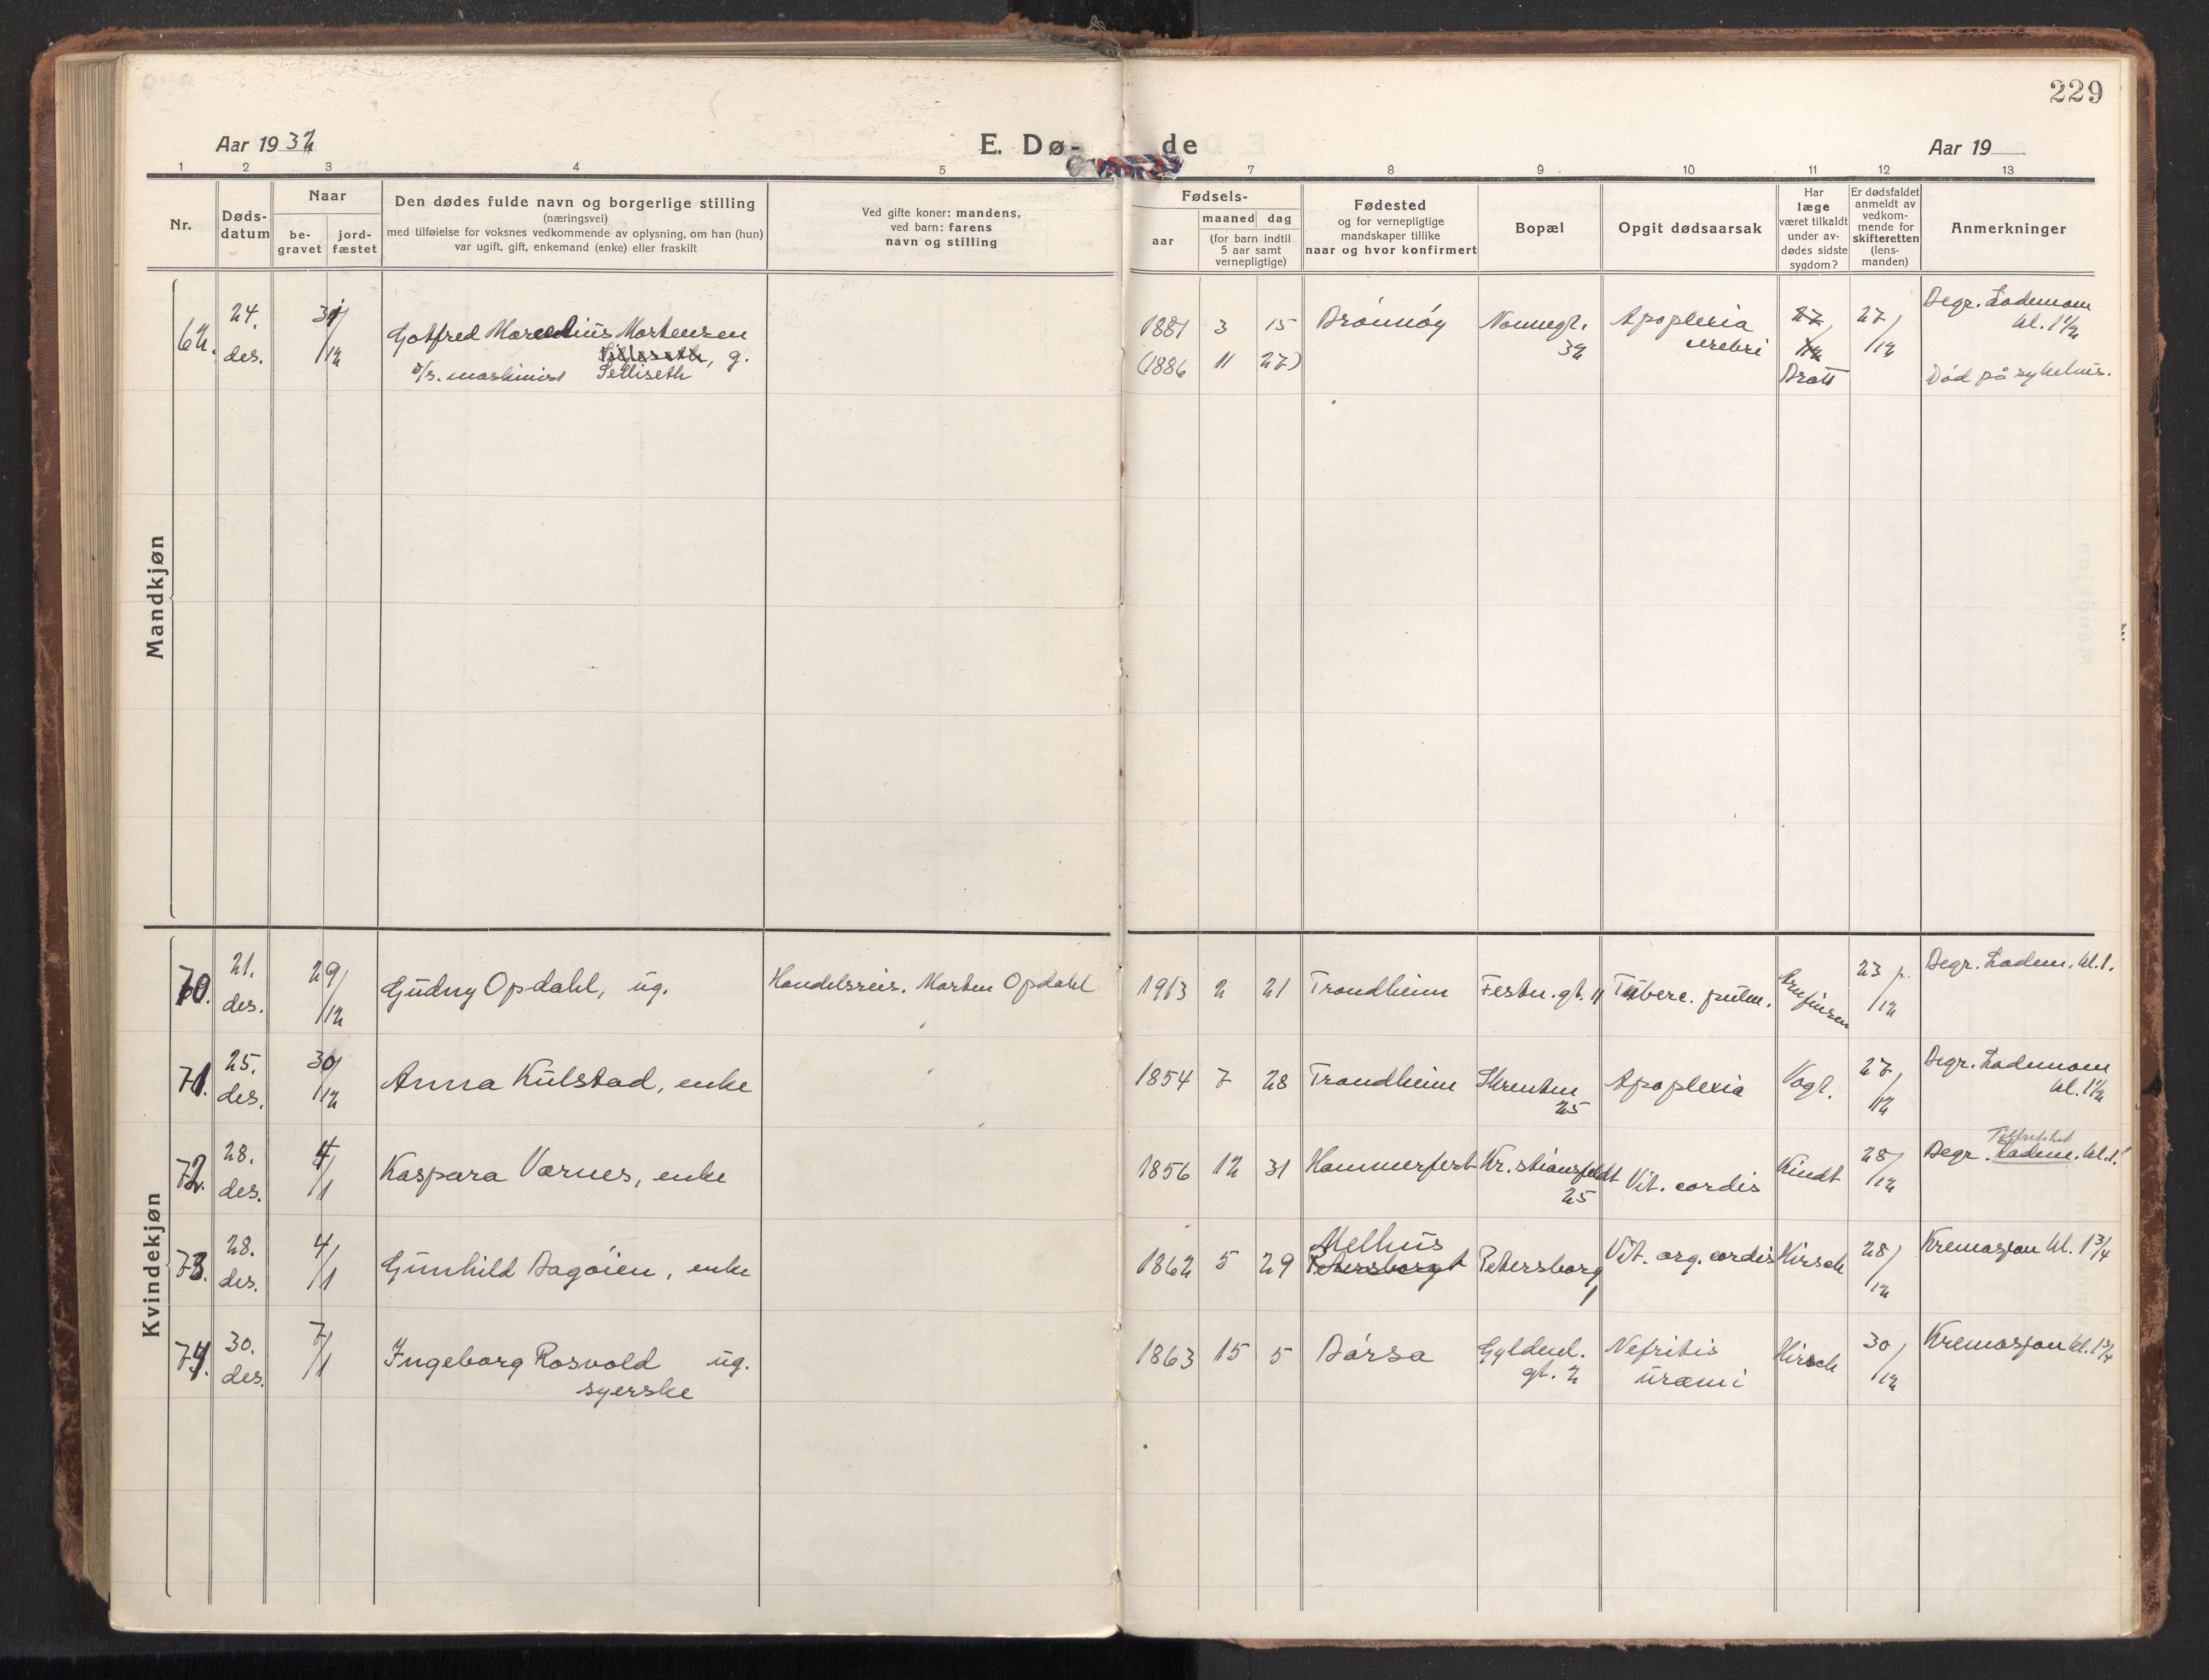 229
Aar 1932
E. Dø-
de
Aar 19
1 2 3 4 5 7 8 9 10 11 12 13
Nr.
Døds-
datum
Naar
be-
gravet
jord-
fæstet
Den dødes fulde navn og borgerlige stilling
(næringsvei)
med tilføielse for voksnes vedkommende av oplysning, om han (hun)
var ugift, gift, enkemand (enke) eller fraskilt
Ved gifte koner: mandens,
ved barn: farens
navn og stilling
Fødsels-
aar
maaned dag
(for barn indtil
5 aar samt
vernepligtige)
Fødested
og for vernepligtige
mandskaper tillike
naar og hvor konfirmert
Bopæl
Opgit dødsaarsak
Har
læge
været tilkaldt
under av-
dødes sidste
sygdom?
Er dødsfaldet
anmeldt av
vedkom-
mende for
skifteretten
(lens-
manden)
Anmerkninger
Mandkjøn
62. 24. des. 31/12 Gotfred Marcelius Mortensen
Selliseth, g.
d/s. maskinist
1881 3 15 Brønnøy Nonnegt. 32 Apoplexia cerebri Bratt 27/12 Begr. Lademoen kl. 1 1/2
(1886 11 27) Død på sykehus.
Kvindekjøn
70. 21. des. 29/12 Gudny Opdahl, ug. Handelsreis. Morten Opdahl 1913 2 21 Trondheim Festn. gt. 11 Tuberc. pulm. 23/12 Begr. Ladem. kl. 1.
71. 25. des. 30/12 Anna Kulstad, enke 1854 7 28 Trondheim Skrenten 25 Apoplexia Vogt. 27/12 Begr. Lademoen kl. 1 1/2
72. 28. des. 4/1 Kaspara Værnes, enke 1856 12 31 Hammerfest Kr.stiansfeldt 25 Vit. cordis Kindt 28/12 Begr. Ladem. kl. 1.
73. 28. des. 4/1 Gunhild Bagøien, enke 1862 5 29 Melhus Petersborg 1 Vit. org. cordis Hirsch 28/12 Kremasjon kl. 1 3/4
74. 30. des. 7/1 Ingeborg Rosvold ug.
syerske
1863 15 5 Børsa Gyldenl. gt. 2 Nefritis uræmi Hirsch 30/12 Kremasjon kl. 1 3/4